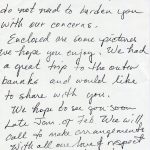 do not need to burden you
with our concerns.
Enclosed are some pictures
we hope you enjoy. We had
a great trip to the outer
banks and would like
to share with you.
We hope to see you soon
Late Jan. or Feb We will
call to make arrangements
With all our love & respect